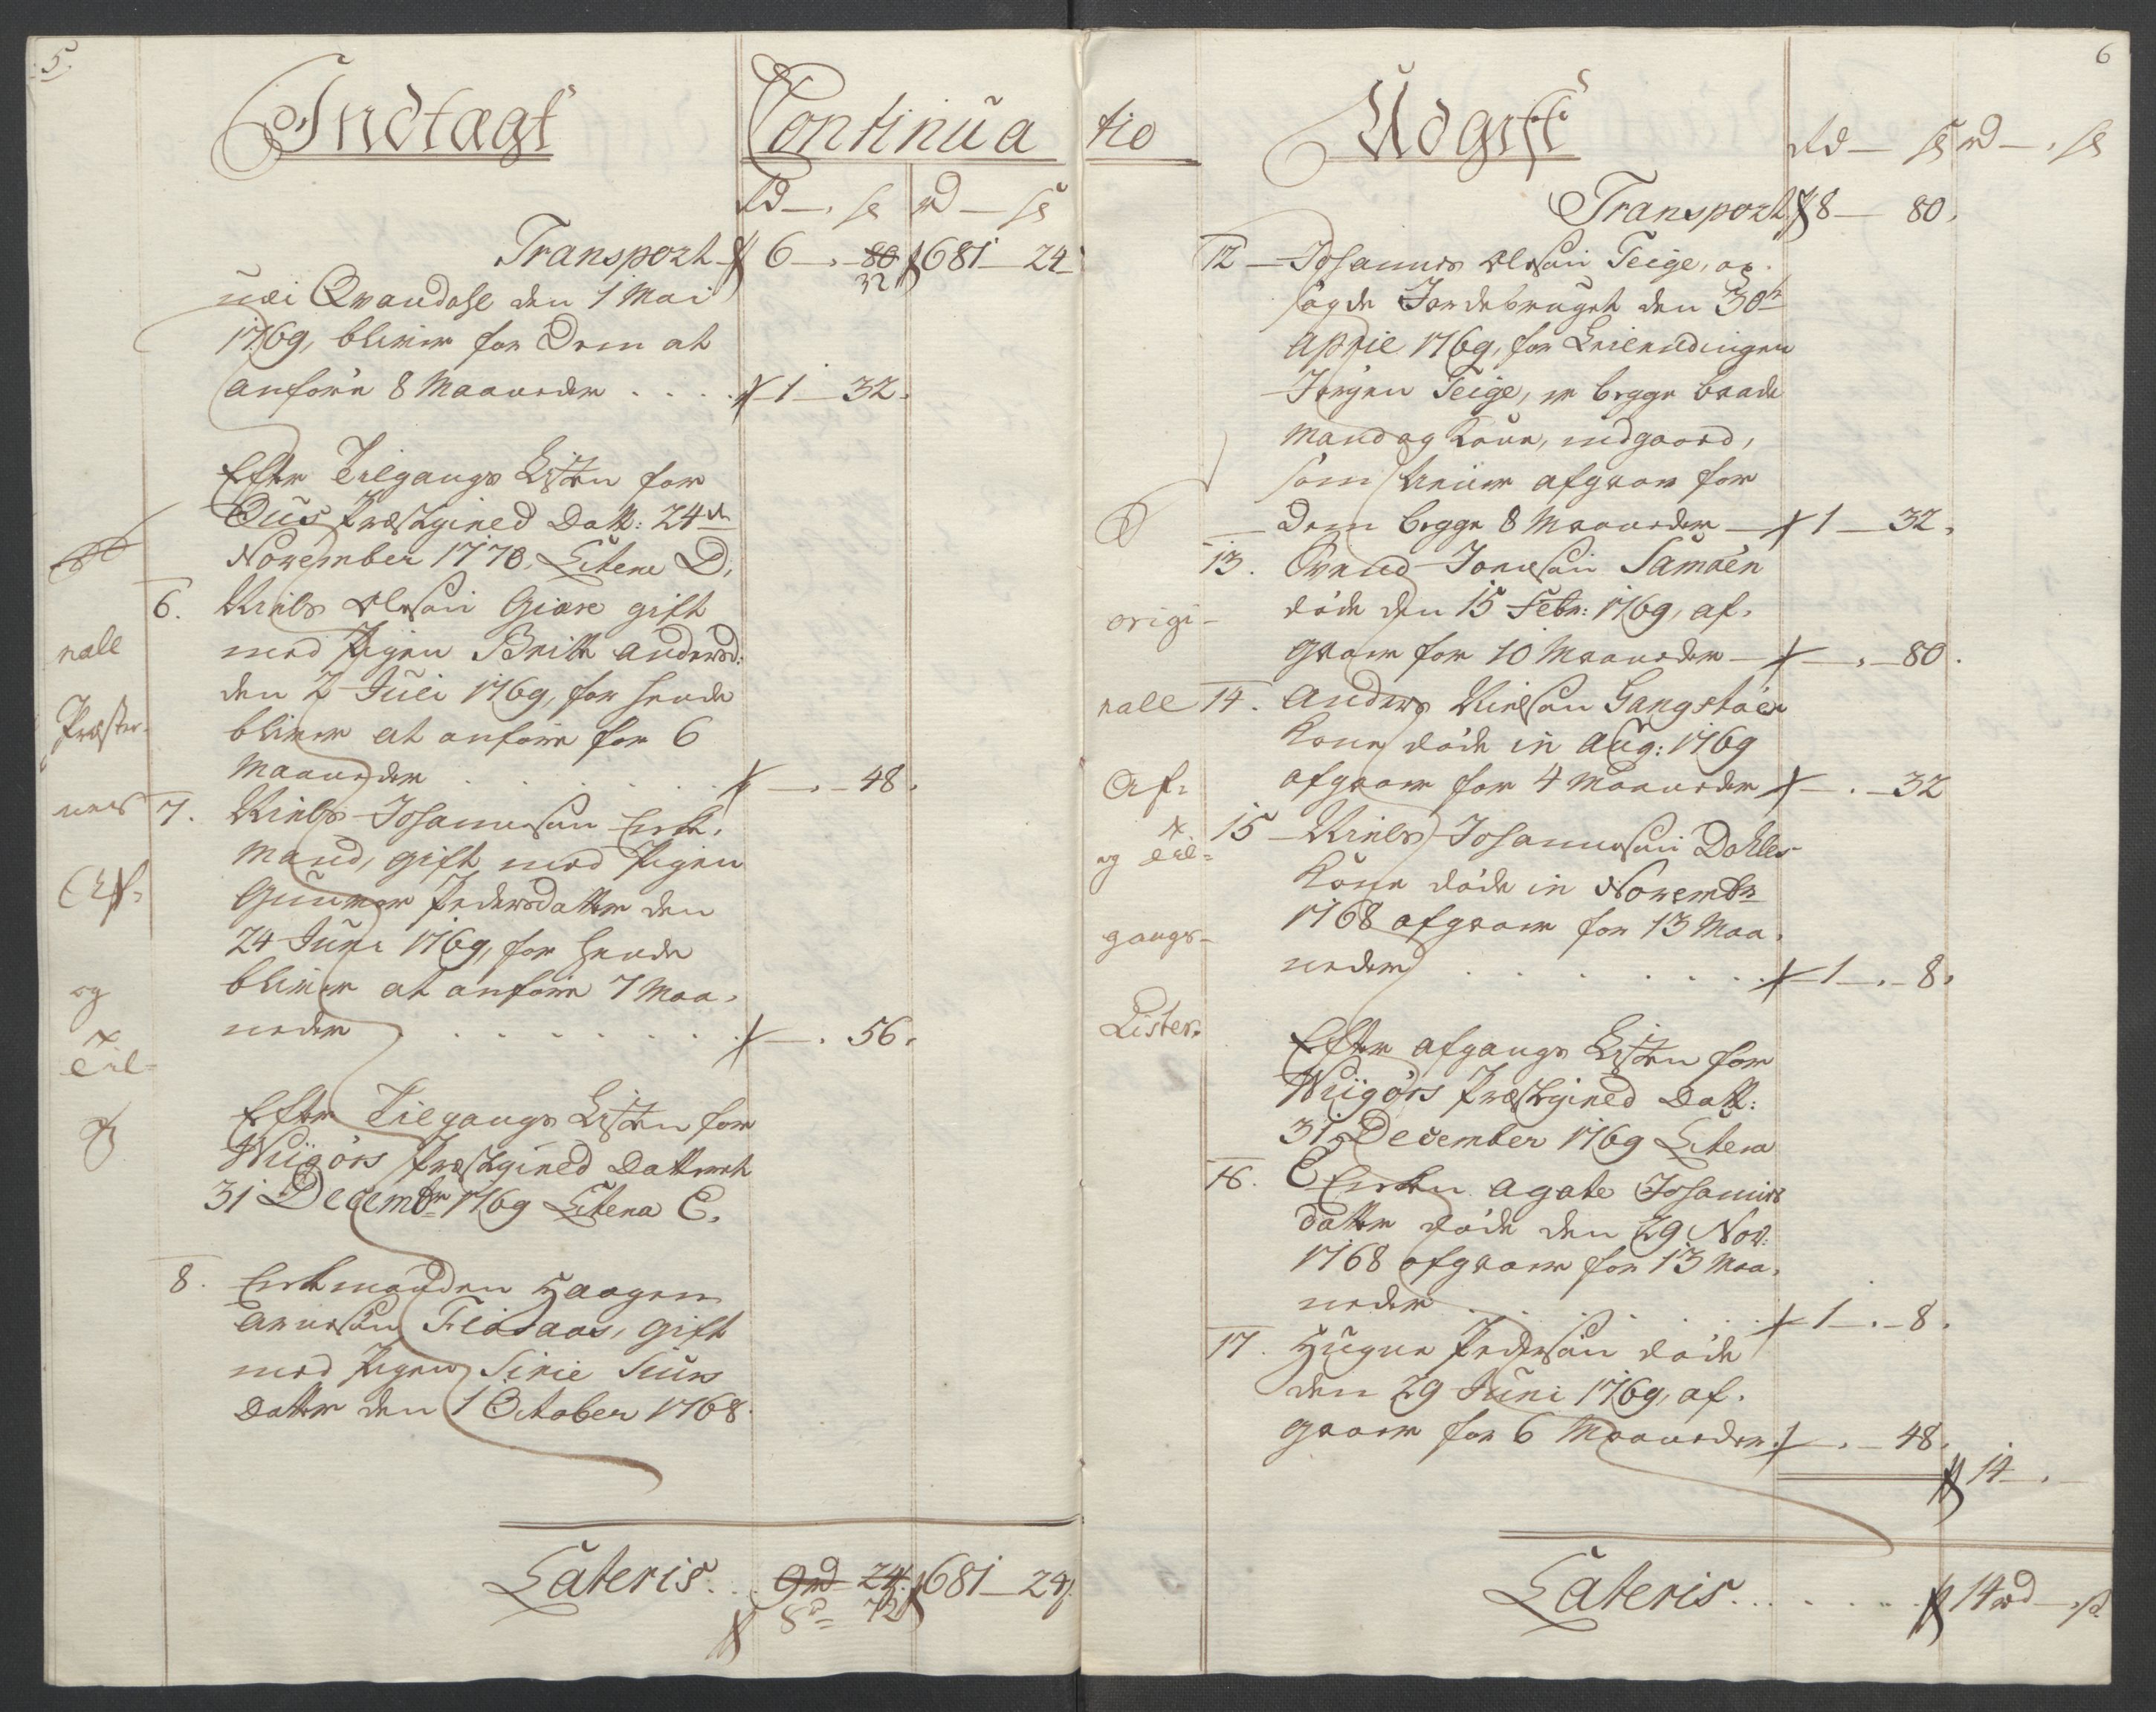 5.
Indtægt
Continua
Rd — ſs rd — ſs
Transport 6 — 80 681 — 24
32
nei Qvandahl den 1 Mai
1769, bliver for Dem at
anføre 8 Maaneder . . . 1 — 32.
Efter Tilgangs Listen for
Ous Præstegield Datt: 24de
November 1770, Litera D,
6. Niels Olesøn Giære gift
med Pigen Britte Andersd:
den 2 Juli 1769, for hende
bliver at anføre for 6
Maaneder . . . . — . — 48.
7. Niels Johannesøn Enke,
Mand, gift med Pigen
Gunner Pedersdatter den
24 Juni 1769, for hende
bliver at anføre 7 Maa,
neder . . . . . . — . 56.
Efter Tilgangs Listen for
Wiigørs Præstegield Datteret
31 Decembr 1769 Litera E.
8. Enkemanden Haagen
Arnesøn Fladaas, gift
med Pigen Sirie Siurs
Datter den 1 October 1768.
nall
Præster-
nes
Af-
og
Til-
Lateris. . . 9rd 24. 681 — 24.
8 „ 72
6
tio
Udgift
Rd — ſs rd — ſs
Transport 8 — 80.
12 — Johannes Olesøn Teige, op-
sagde Jordebruget den 30te
April 1769, for Leilendingen
Jørgen Teige, er begge baade
Mand og Kone, indgaard,
som bliver afgaaer for
Dem begge 8 Maaneder — 1 — 32.
13. Svend Jonesøn Samnøen
døde den 15 Febr: 1769, af-
gaaer for 10 Maaneder — . — 80.
14. Anders Nielsøn Gangstøes
Kone døde in Aug: 1769
afgaaer for 4 Maaneder — . — 32
15 — Niels Johannesøn Dahles
Kone døde in Novembr
1768 afgaaer for 13 Maa,
neder . . . . . . 1 — . — 8.
Efter afgangs Listen for
Wiigørs Præstegield Datt:
31 December 1769 Litera
16. E Enken Agate Johannes
datter døde den 29 Nov:
1768 afgaaer for 13 Maa,
neder . . . . . 1 — . — 8.
17. Hugne Pedersøn døde
den 29 Juni 1769, af-
gaaer for 6 Maaneder — . — 48.
14 — . —
origi-
nall
Af-
og Til-
gangs-
Lister.
Lateris. . . . . . . 14 rd — „ ſs.